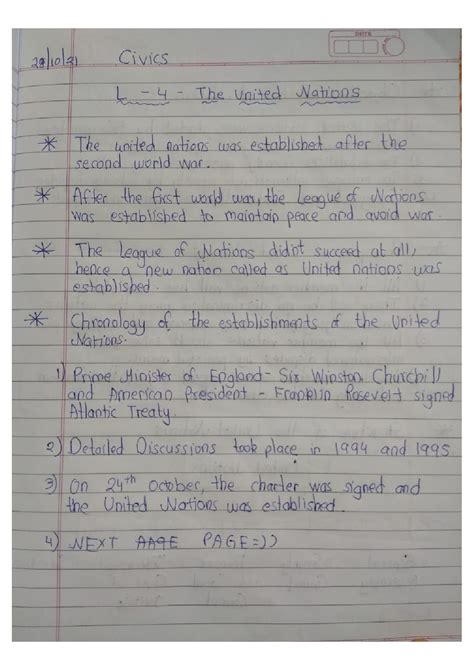 DATE
29/10/21 Civics
L - 4 - The United Nations
* The united nations was established after the
second world war.
* After the first world war, the League of Nations
was established to maintain peace and avoid war.
* The League of Nations didn't succeed at all,
hence a new nation called as United nations was
established.
* Chronology of the establishments of the United
Nations.
1) Prime Minister of England - Sir Winston Churchill
and American President - Franklin Rosevelt signed
Atlantic Treaty
2) Detailed Discussions took place in 1994 and 1995
3) On 24th October, the charter was signed and
the United Nations was established.
4) NEXT PAGE =))